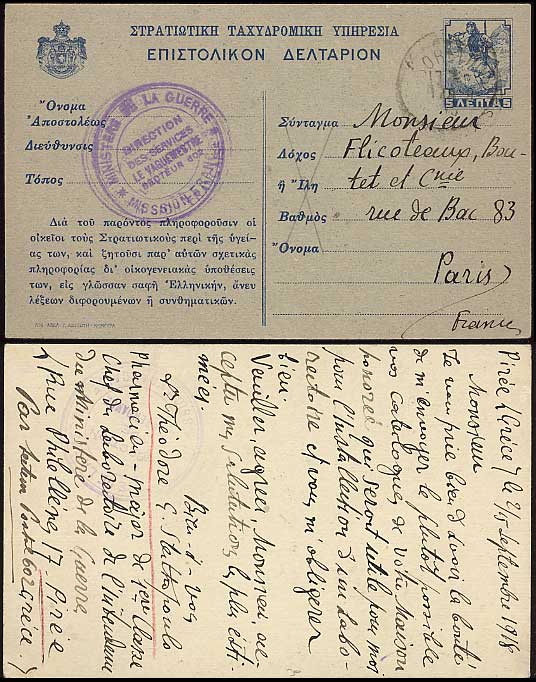 ΣΤΡΑΤΙΩΤΙΚΗ ΤΑΧΥΔΡΟΜΙΚΗ ΥΠΗΡΕΣΙΑ
ΕΠΙΣΤΟΛΙΚΟΝ ΔΕΛΤΑΡΙΟΝ
5 ΛΕΠΤΑ 5
Ὄνομα
Ἀποστολέως
Διεύθυνσις
Τόπος
MINISTERE DE LA GUERRE
MISSION
DIRECTION
DES SERVICES
LE VAGUEMESTRE
Διὰ τοῦ παρόντος πληροφοροῦσιν οἱ
οἰκεῖοι τοὺς Στρατιωτικοὺς περὶ τῆς ὑγεί-
ας των, καὶ ζητοῦσι παρ' αὐτῶν σχετικὰς
πληροφορίας δι' οἰκογενειακὰς ὑποθέσεις
των, εἰς γλῶσσαν σαφῆ Ἑλληνικήν, ἄνευ
λέξεων διφορουμένων ἢ συνθηματικῶν.
Σύνταγμα Monsieur
Λόχος Flicoteaux, Bou-
ἢ Ἴλη tet et Cnie
Βαθμὸς rue de Bac 83
Ὄνομα
Paris
France
Pirée (Grèce) le 2/15 septembre 1918
Monsieur
Je vous prie bien d'avoir la bonté
de m'envoyer le plutot possible
vos catalogues de votre Maison
honorée qui seront utile pour moi
pour l'installation d'un Labo-
ratoire et vous m'obligerez
bien.
Veuillez agréer, Monsieur, ac-
cepter mes salutations les plus esti-
mées.
Bien à vos
Théodore G. Stathopoulo
Pharmacien-major de 1ere classe
Chef du Laboratoire de l'intendance
du ministère de la Guerre
(Rue Philellène, 17 Pirée
Grèce)